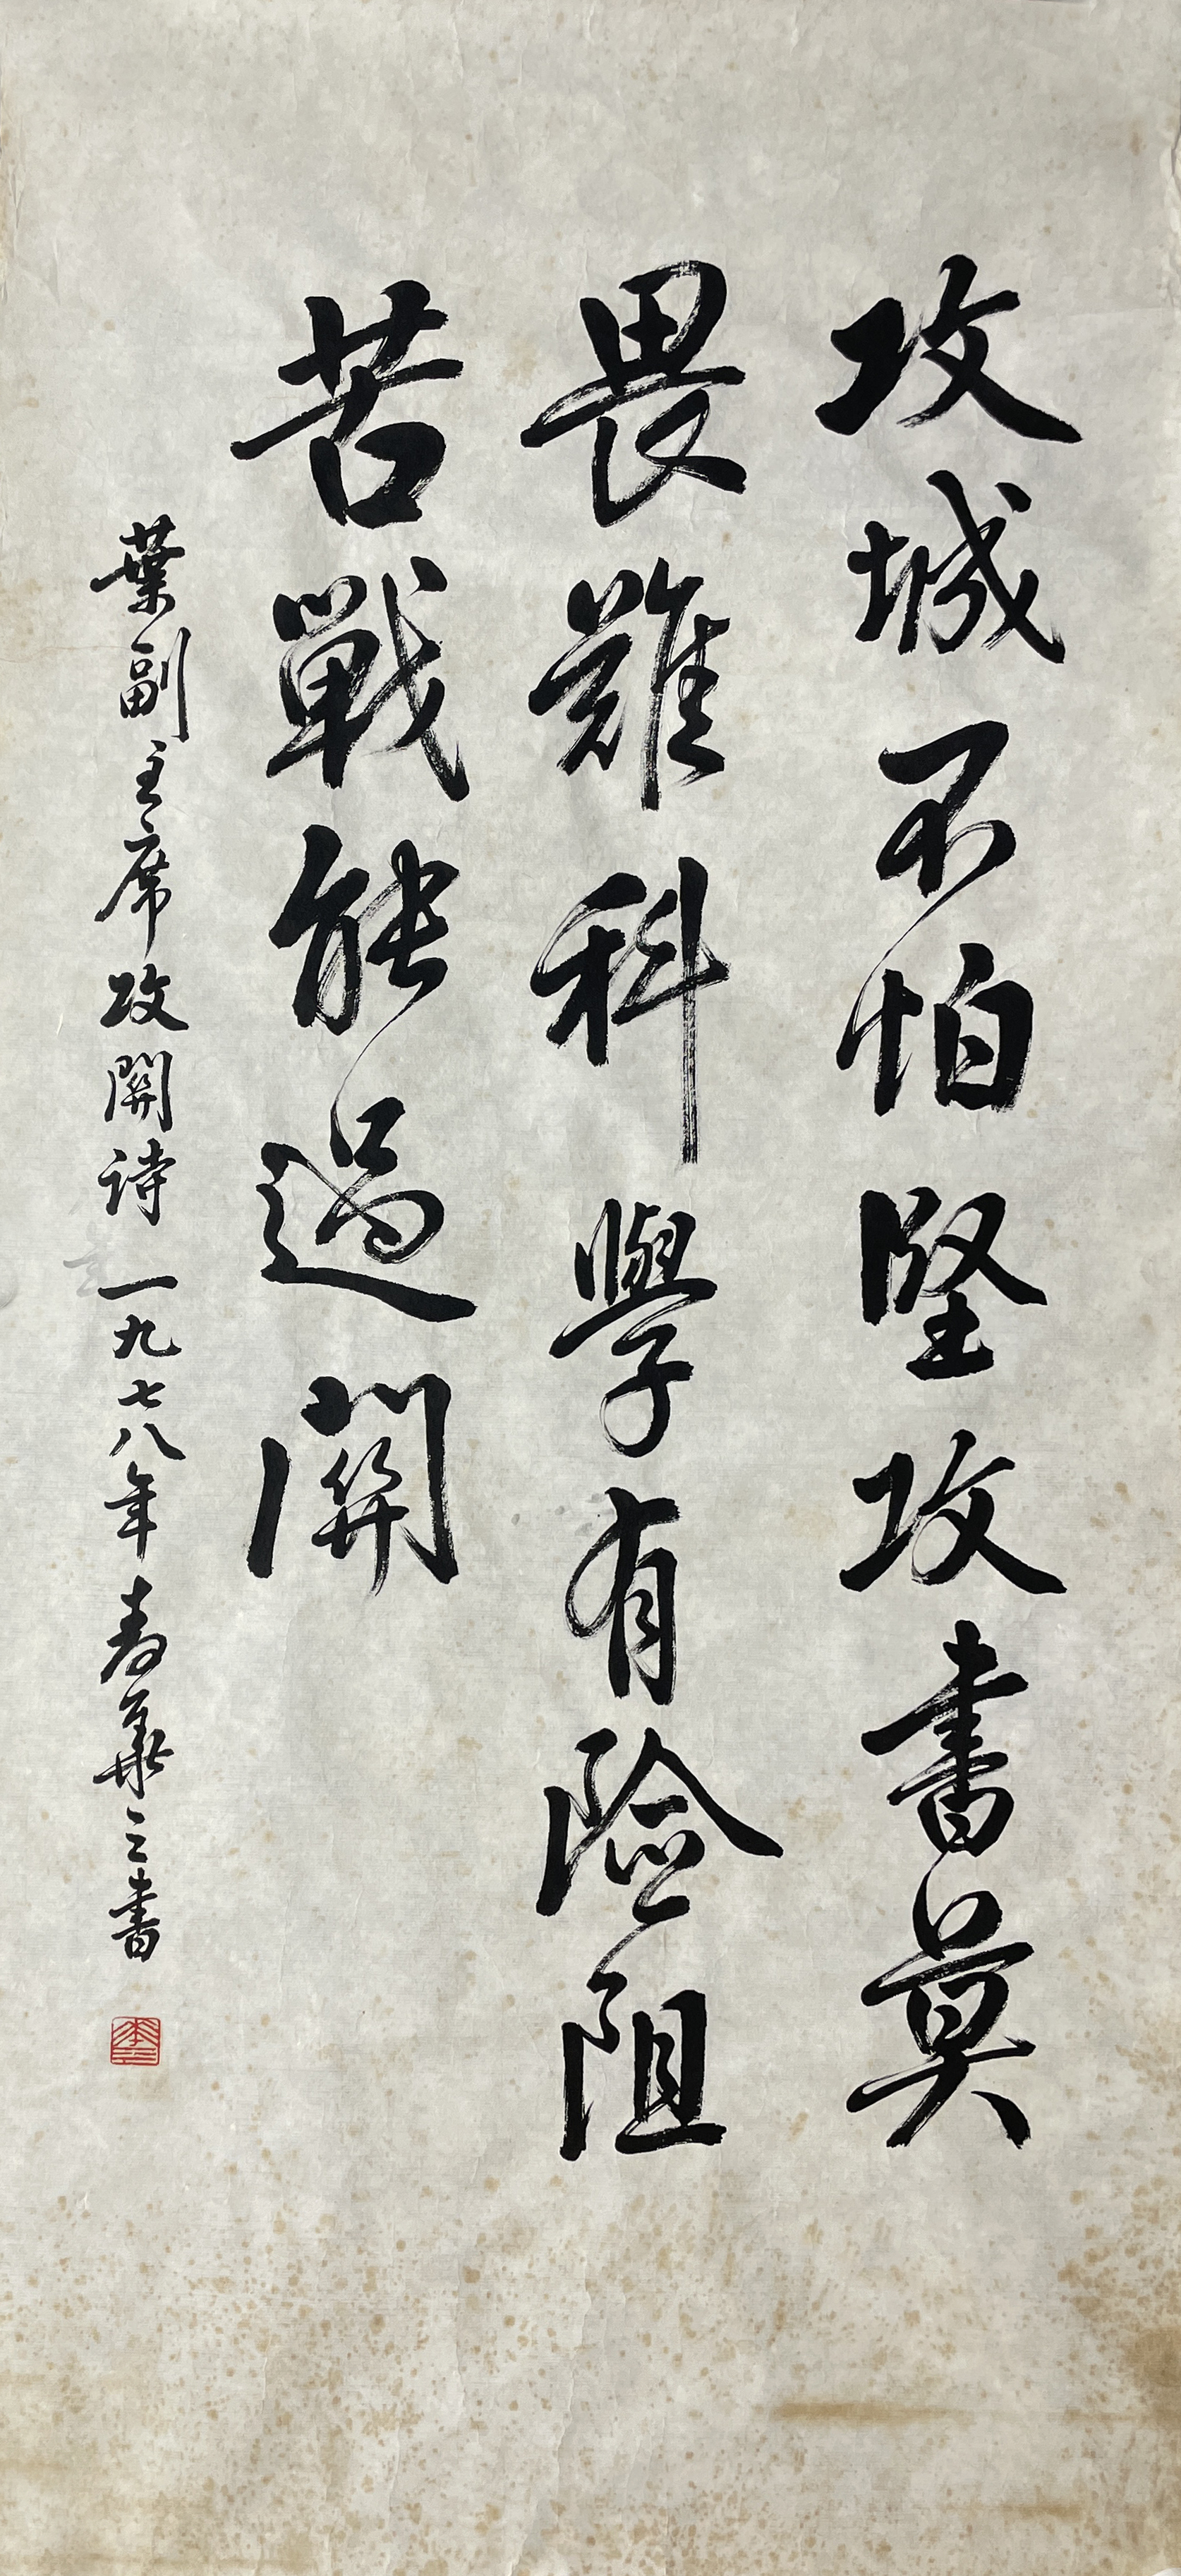 攻城不怕堅攻書莫
畏難科學有險阻
苦戰能過關
葉副主席攻關诗一九七八年春華三書